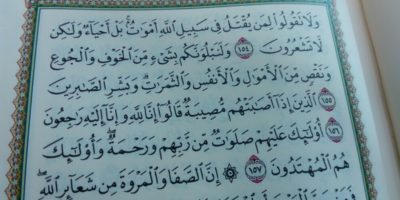 وَلَا تَقُولُوا۟ لِمَن يُقْتَلُ فِى سَبِيلِ ٱللَّهِ أَمْوَٰتٌۢ ۚ بَلْ أَحْيَآءٌ وَلَـٰكِن
لَّا تَشْعُرُونَ ١٥٤ وَلَنَبْلُوَنَّكُم بِشَىْءٍ مِّنَ ٱلْخَوْفِ وَٱلْجُوعِ
وَنَقْصٍ مِّنَ ٱلْأَمْوَٰلِ وَٱلْأَنفُسِ وَٱلثَّمَرَٰتِ ۗ وَبَشِّرِ ٱلصَّـٰبِرِينَ
١٥٥ ٱلَّذِينَ إِذَآ أَصَـٰبَتْهُم مُّصِيبَةٌ قَالُوٓا۟ إِنَّا لِلَّهِ وَإِنَّآ إِلَيْهِ رَٰجِعُونَ
١٥٦ أُو۟لَـٰٓئِكَ عَلَيْهِمْ صَلَوَٰتٌ مِّن رَّبِّهِمْ وَرَحْمَةٌ ۖ وَأُو۟لَـٰٓئِكَ
هُمُ ٱلْمُهْتَدُونَ ١٥٧ ۞ إِنَّ ٱلصَّفَا وَٱلْمَرْوَةَ مِن شَعَآئِرِ ٱللَّهِ ۖ